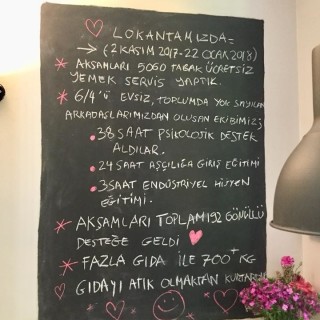 LOKANTAMIZDA =
→ (2 KASIM 2017-22 OCAK 2018)
* AKŞAMLARI 5060 TABAK ÜCRETSİZ
YEMEK SERVİS YAPTIK.
* 6/4'ü EVSİZ, TOPLUMDA YOK SAYILAN
ARKADAŞLARIMIZDAN OLUŞAN EKİBİMİZ;
• 38 SAAT PSİKOLOJİK DESTEK
ALDILAR.
• 24 SAAT AŞÇILIĞA GİRİŞ EĞİTİMİ
• 3 SAAT ENDÜSTRİYEL HİJYEN
EĞİTİMİ.
* AKŞAMLARI TOPLAM 192 GÖNÜLLÜ
DESTEĞE GELDİ
* FAZLA GIDA İLE 700+ KG
GIDAYI ATIK OLMAKTAN KURTARDIK